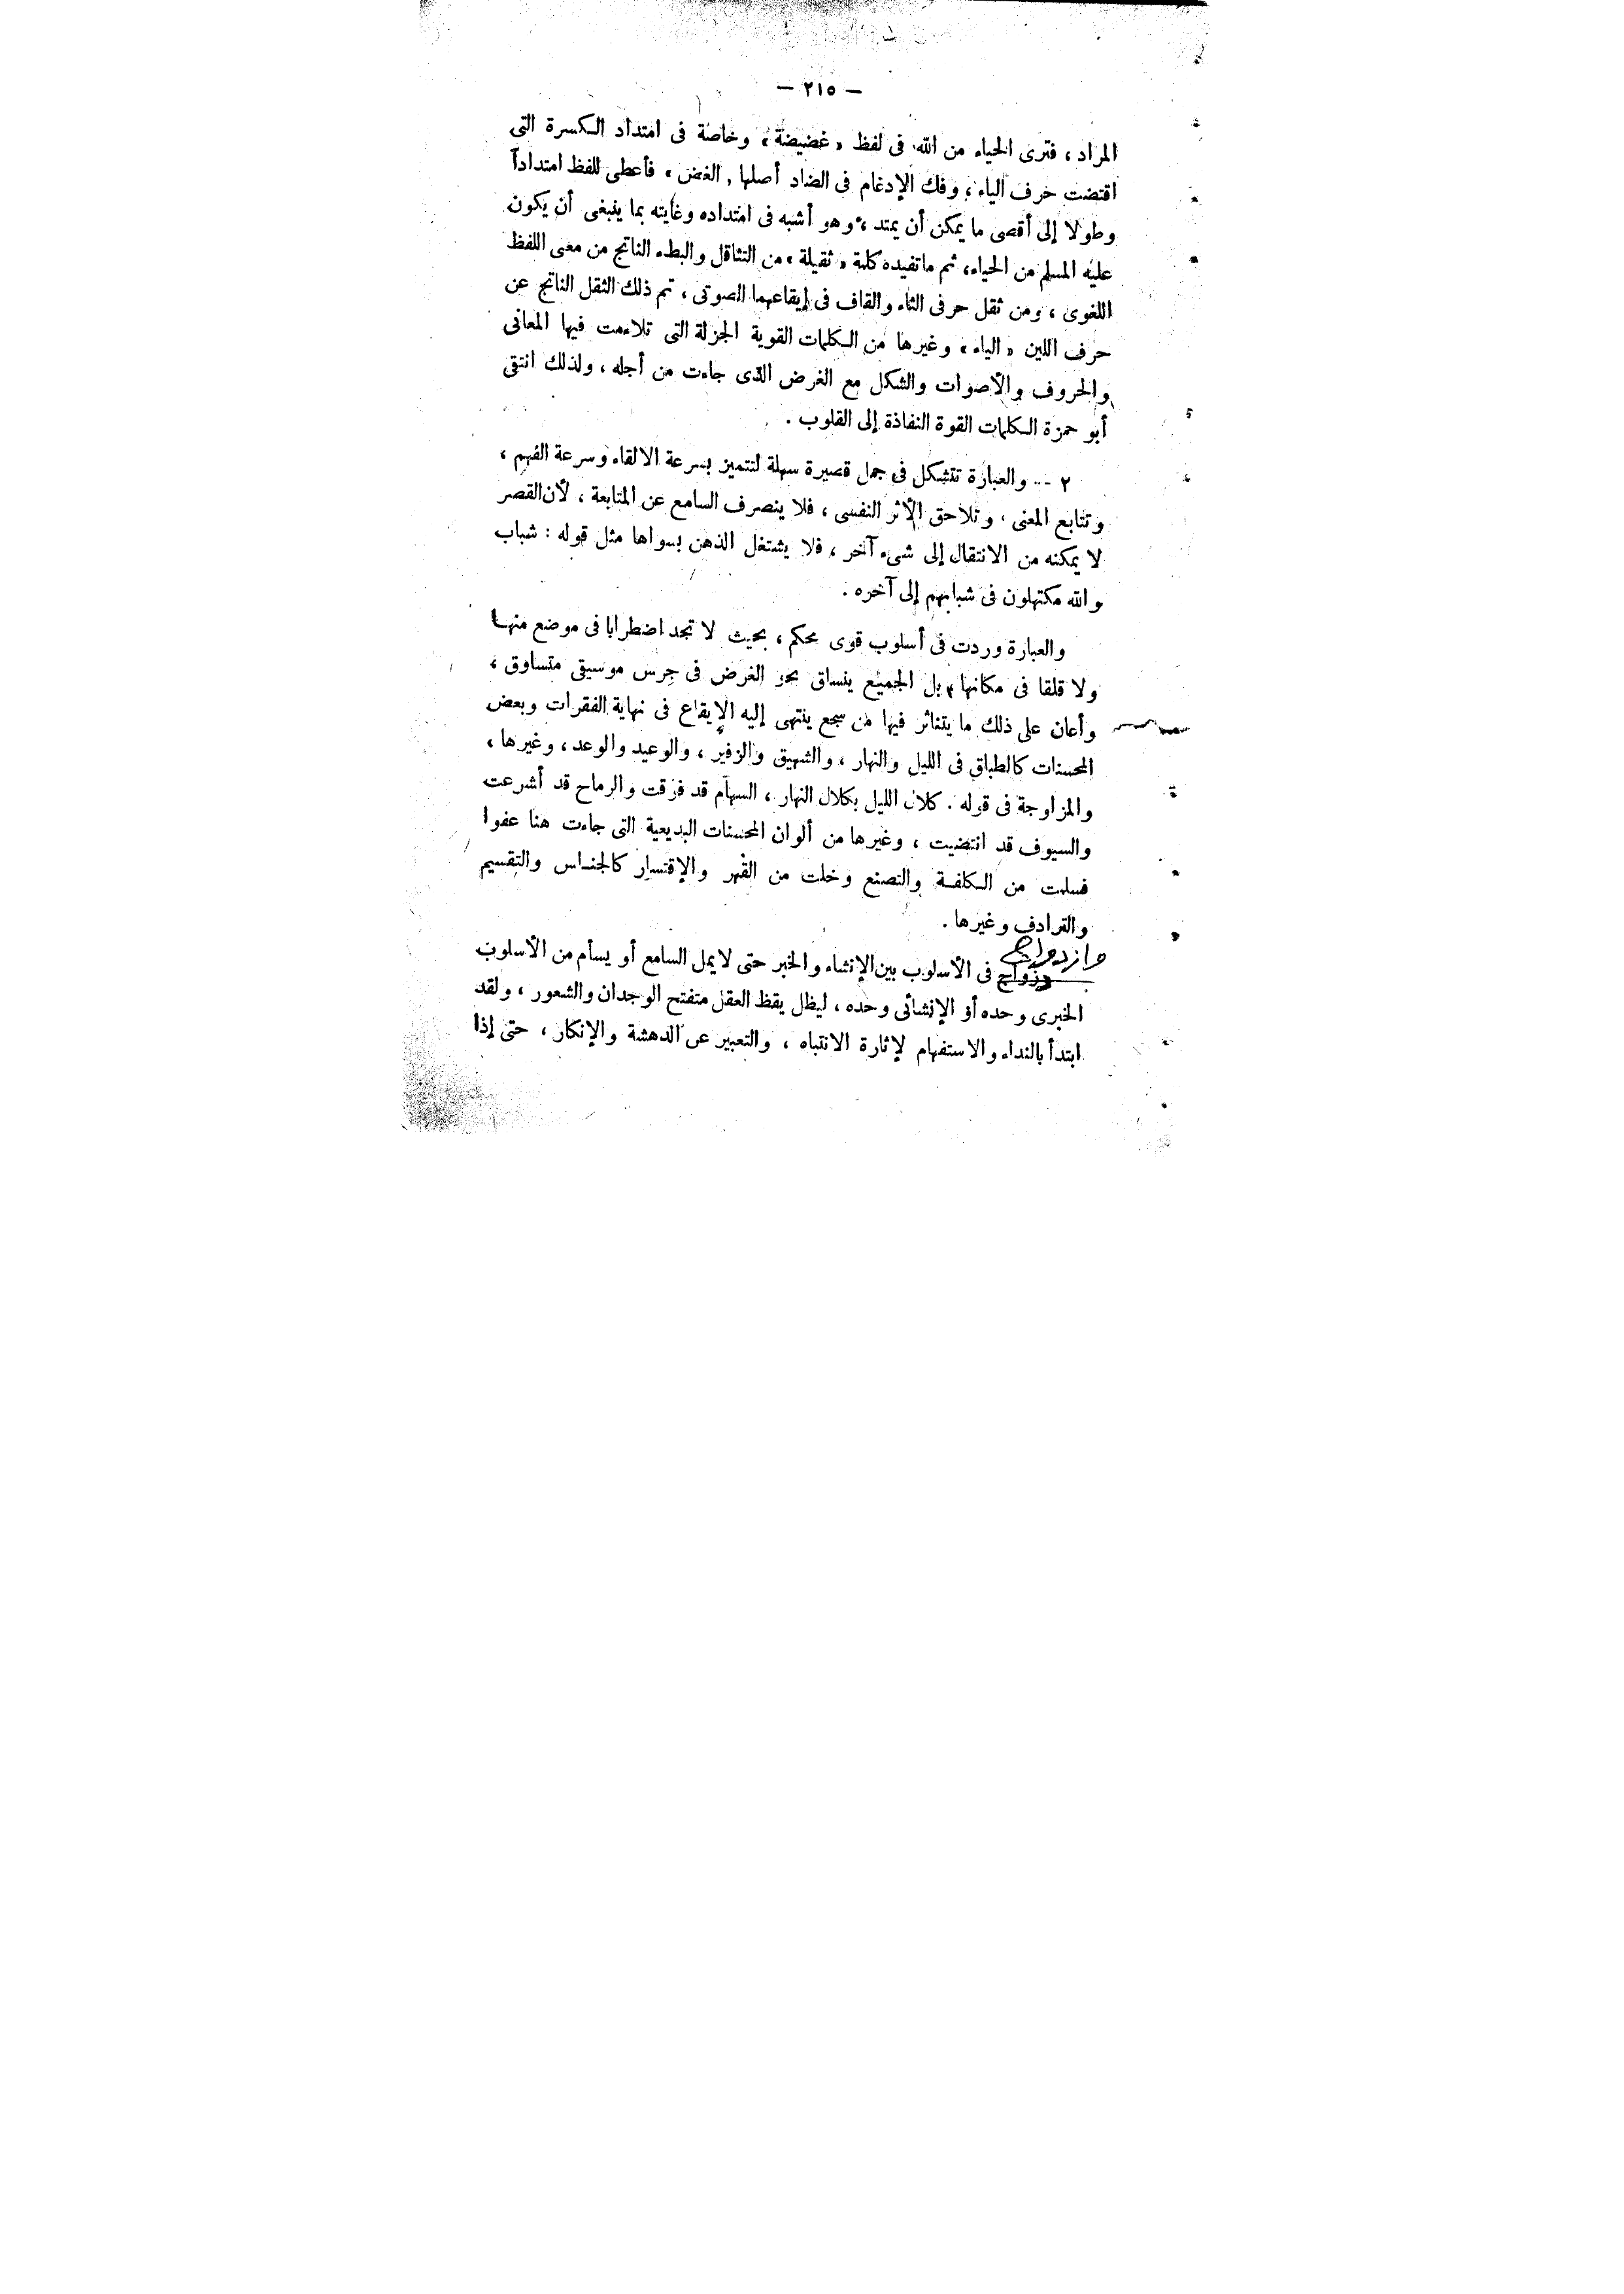 — ٢١٥ —
المراد ، فترى الحياء من الله فى لفظ « غضيضة » وخاصة فى امتداد الكسرة التى
اقتضت حرف الياء ، وفك الإدغام فى الضاد أصلها « الغض » فأعطى للفظ امتداداً
وطولا إلى أقصى ما يمكن أن يمتد ، وهو أشبه فى امتداده وغايته بما ينبغى أن يكون
عليه المسلم من الحياء ، ثم ما تفيده كلمة « ثقيلة » من التثاقل والبطء الناتج من معنى اللفظ
اللغوى ، ومن ثقل حرفى الثاء والقاف فى إيقاعهما الصوتى ، ثم ذلك الثقل الناتج عن
حرف اللين « الياء » وغيرها من الكلمات القوية الجزلة التى تلاءمت فيها المعانى
والحروف والأصوات والشكل مع الغرض الذى جاءت من أجله ، ولذلك انتقى
أبو حمزة الكلمات القوة النفاذة إلى القلوب .
٢ -- والعبارة تتشكل فى جمل قصيرة سهلة لتتميز بسرعة الالقاء وسرعة الفهم ،
وتتابع المعنى ، وتلاحق الأثر النفسى ، فلا ينصرف السامع عن المتابعة ، لأن القصر
لا يمكنه من الانتقال إلى شىء آخر ، فلا يشتغل الذهن بسواها مثل قوله : شباب
والله مكتهلون فى شبابهم إلى آخره .
والعبارة وردت فى أسلوب قوى محكم ، بحيث لا تجد اضطرابا فى موضع منها
ولا قلقا فى مكانها ، بل الجميع ينساق نحو الغرض فى جرس موسيقى متساوق ،
وأعان على ذلك ما يتناثر فيها من سجع ينتهى إليه الإيقاع فى نهاية الفقرات وبعض
المحسنات كالطباق فى الليل والنهار ، والشهيق والزفير ، والوعيد والوعد ، وغيرها ،
والمزاوجة فى قوله . كلال الليل بكلال النهار ، السهام قد فوقت والرماح قد أشرعت
والسيوف قد انتضيت ، وغيرها من ألوان المحسنات البديعية التى جاءت هنا عفوا
فسلمت من الكلفة والتصنع وخلت من القهر والإقتسار كالجناس والتقسيم
والترادف وغيرها .
فى الأسلوب بين الإنشاء والخبر حتى لا يمل السامع أو يسأم من الأسلوب
الخبرى وحده أو الإنشائى وحده ، ليظل يقظ العقل متفتح الوجدان والشعور ، ولقد
ابتدأ بالنداء والاستفهام لإثارة الانتباه ، والتعبير عن الدهشة والإنكار ، حتى إذا